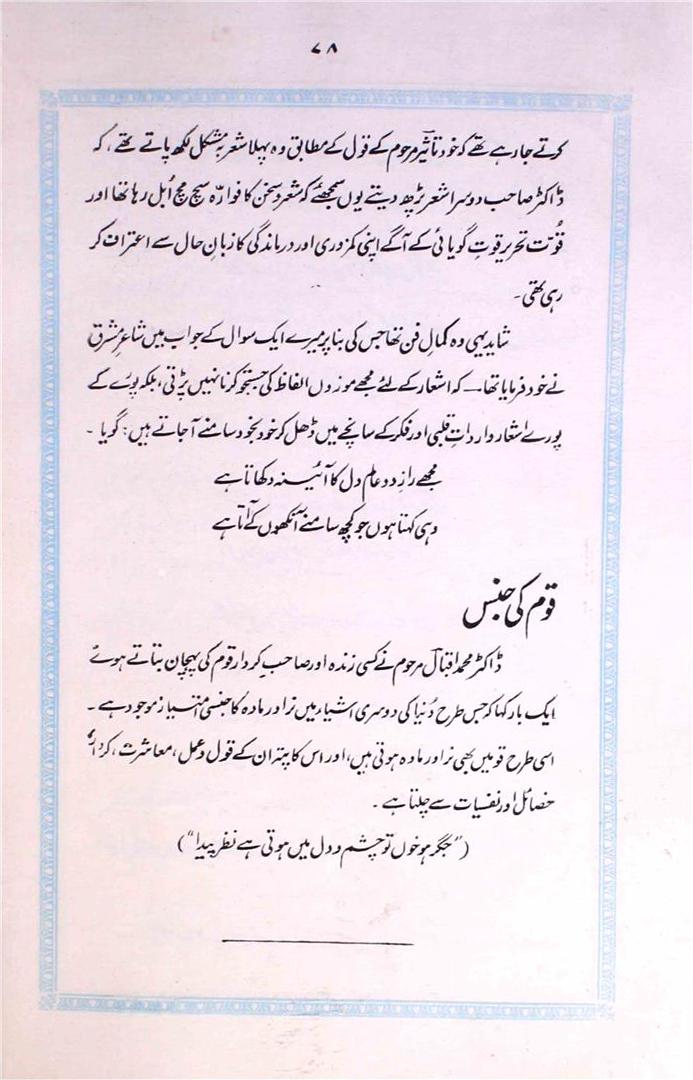 ۷۸
کرتے جا رہے تھے کہ خود تاثیر مرحوم کے قول کے مطابق وہ پہلا شعر بہ مشکل لکھ پاتے تھے، کہ
ڈاکٹر صاحب دوسرا شعر پڑھ دیتے یوں سمجھئے کہ شعر و سخن کا فوارہ سچ مچ اُبل رہا تھا اور
قوّت تحریر قوتِ گویائی کے آگے اپنی کمزوری اور درماندگی کا زبانِ حال سے اعتراف کر
رہی تھی۔
شاید یہی وہ کمالِ فن تھا جس کی بنا پر میرے ایک سوال کے جواب میں شاعرِ مشرق
نے خود فرمایا تھا۔ کہ اشعار کے لئے مجھے موزوں الفاظ کی جستجو کرنا نہیں پڑتی، بلکہ پورے کے
پورے اشعار وارداتِ قلبی اور فکر کے سانچے میں ڈھل کر خود بخود سامنے آ جاتے ہیں؛ گویا۔
مجھے رازِ دو عالم دل کا آئینہ دکھاتا ہے
وہی کہتا ہوں جو کچھ سامنے آنکھوں کے آتا ہے
قوم کی جنس
ڈاکٹر محمد اقبالؔ مرحوم نے کسی زندہ اور صاحبِ کردار قوم کی پہچان بتاتے ہوئے
ایک بار کہا کہ جس طرح دُنیا کی دوسری اشیاء میں نر اور مادہ کا جنسی امتیاز موجود ہے۔
اسی طرح قومیں بھی نر اور مادہ ہوتی ہیں، اور اس کا پتہ ان کے قول و عمل، معاشرت، کردار
خصائل اور نفسیات سے چلتا ہے۔
(“جگر ہو خوں تو چشم و دل میں ہوتی ہے نظر پیدا“)